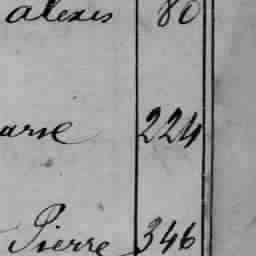 alexis 80
arse 224
Pierre 346